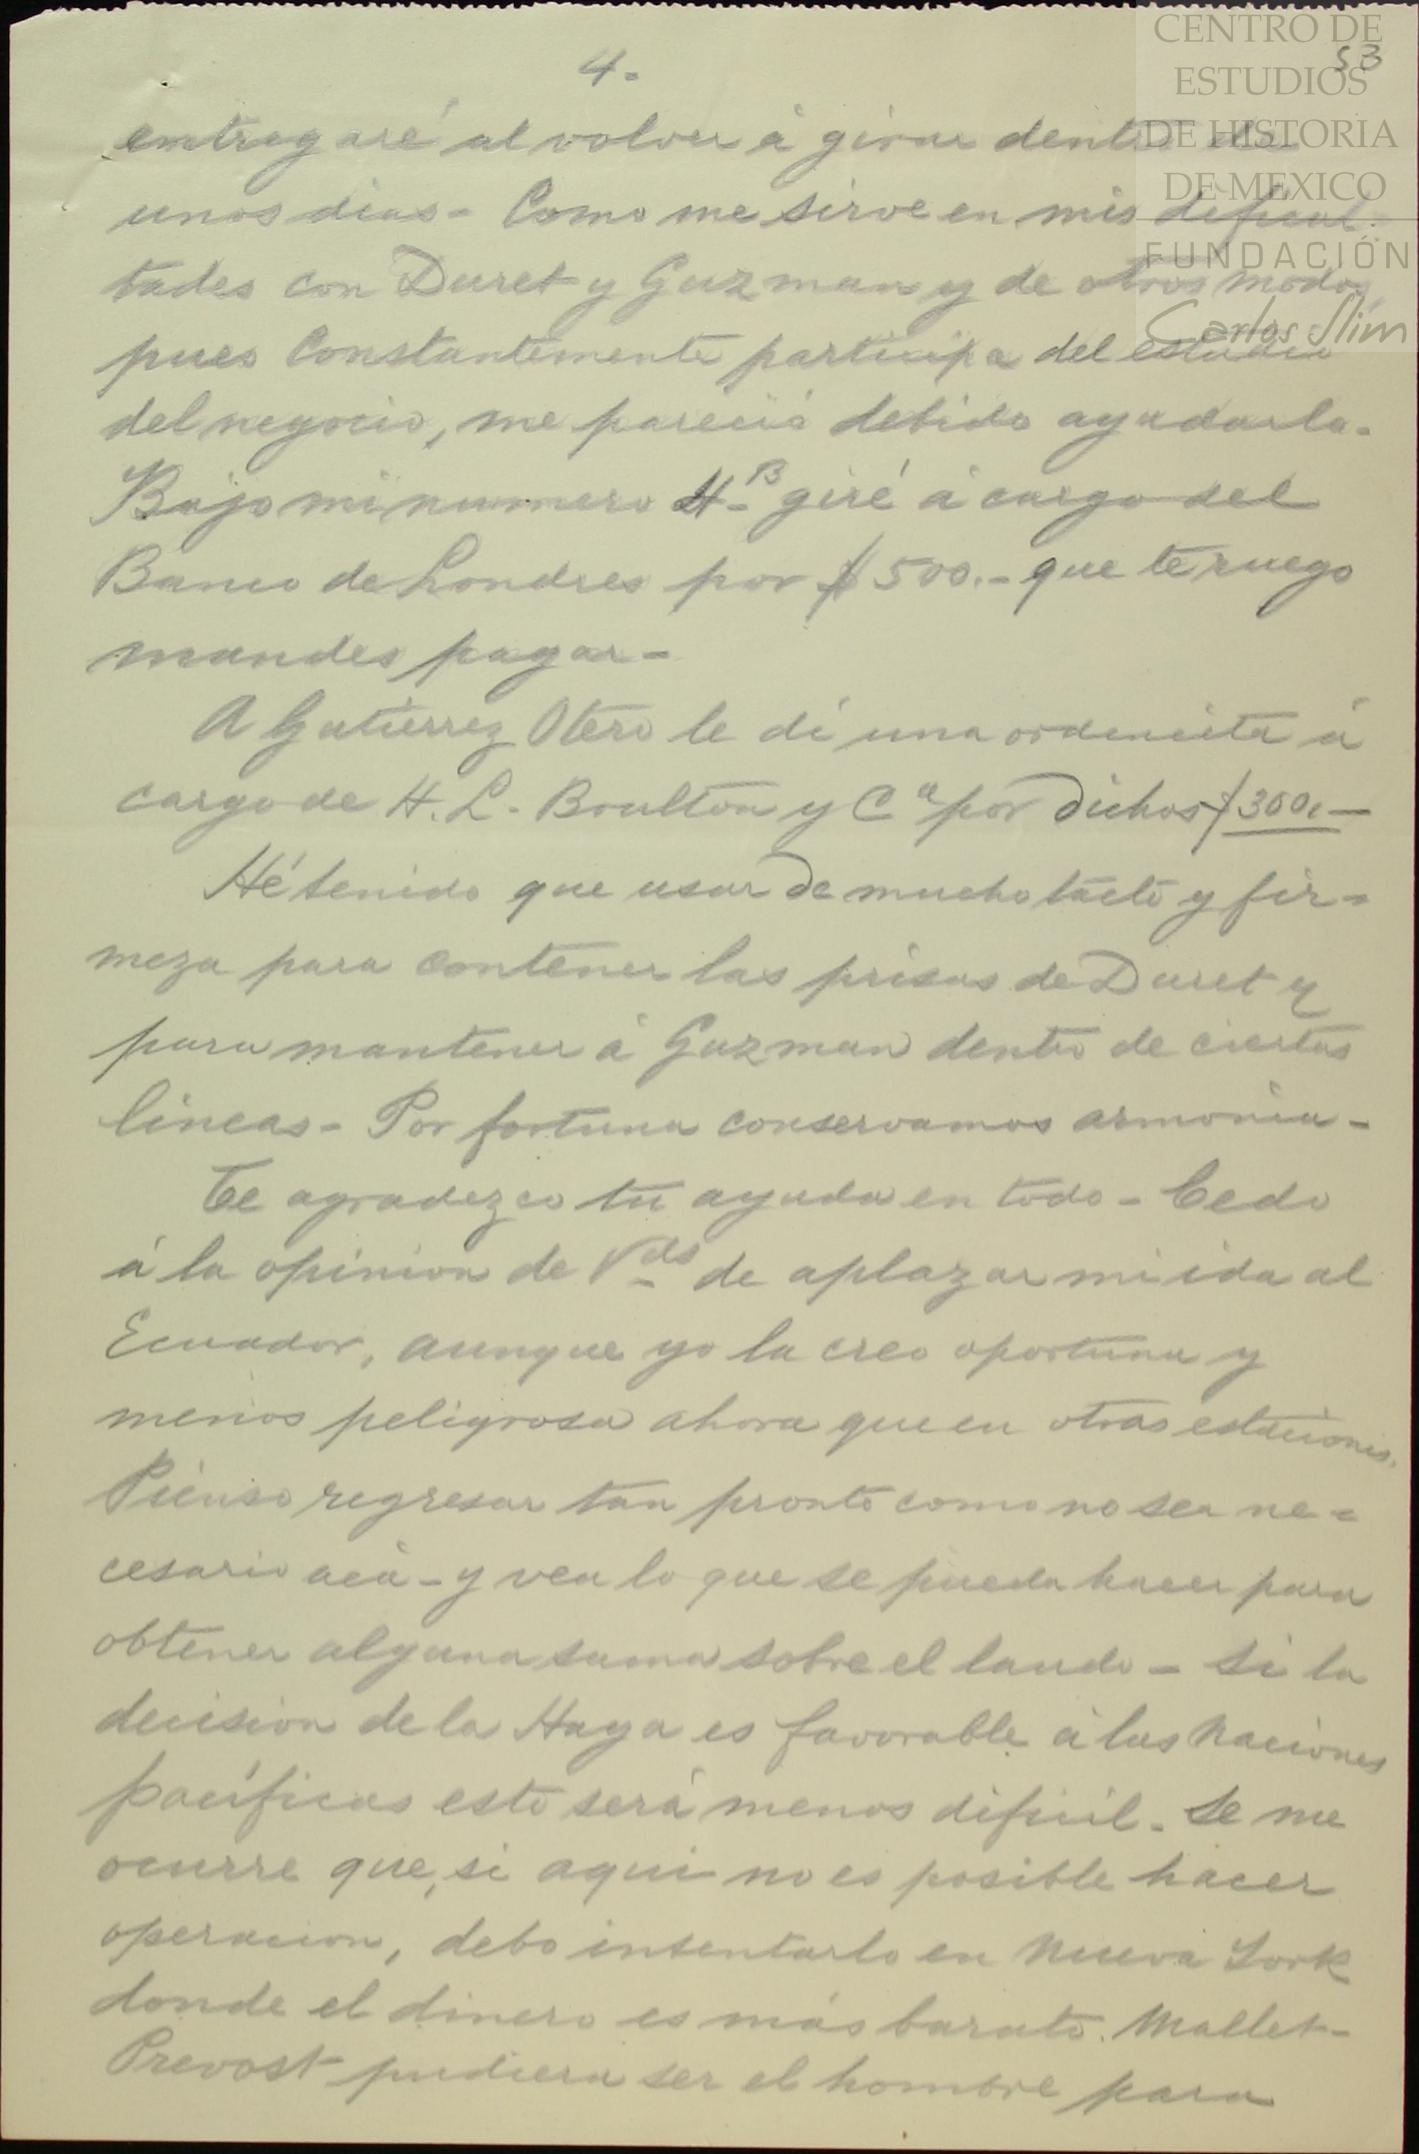 CENTRO DE
ESTUDIOS
DE HISTORIA
DE MEXICO
FUNDACIÓN
Carlos Slim
53
4.
entregaré al volver á girar dentro de
unos dias - Como me sirve en mis deficul-
tades con Duret y Guzman y de otros modos,
pues constantemente participa del estudio
del negocio, me pareció debido ayudarla.
Bajo mi numero 4-B giré á cargo del
Banco de Londres por $500.- que te ruego
mandes pagar -
A Gutierrez Otero le dí una ordencita á
cargo de H. L. Boulton y Cª por dichos $300.-
Hé tenido que usar de mucho tacto y fir-
meza para contener las prisas de Duret y
para mantener á Guzman dentro de ciertas
lineas - Por fortuna conservamos armonia -
Te agradezco tu ayuda en todo - Cedo
á la opinion de Vds de aplazar mi ida al
Ecuador, aunque yo la creo oportuna y
menos peligrosa ahora que en otras estaciones.
Pienso regresar tan pronto como no sea ne-
cesario acá - y vea lo que se pueda hacer para
obtener alguna suma sobre el laudo - Si la
decision de la Haya es favorable á las naciones
pacíficas esto será menos dificil. Se me
ocurre que, si aqui no es posible hacer
operacion, debo intentarlo en Nueva York
donde el dinero es más barato. Mallet-
Prevost pudiera ser el hombre para